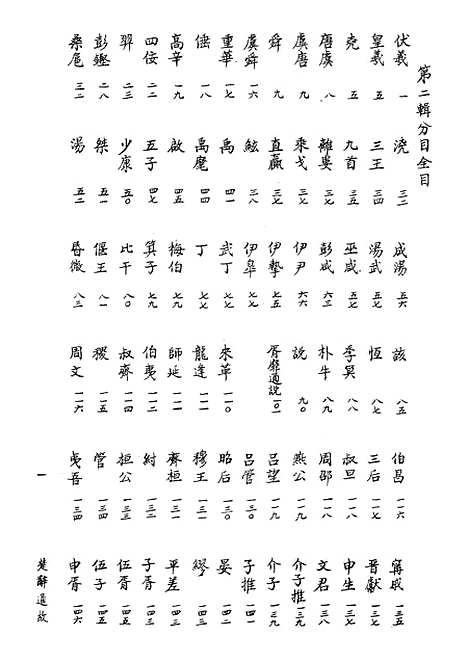 第二輯分目全目
伏羲 一
皇羲 五
堯 五
唐虞 八
虞唐 九
舜 九
虞舜 一六
重華 一七
倕 一八
高辛 一九
四佞 二二
羿 二三
彭鏗 二八
桑扈 三二
澆 三二
三王 三四
九首 三五
離婁 三七
乘戈 三七
直贏 三七
鮌 三八
禹 四一
禹麾 四四
啟 四五
五子 四七
少康 五〇
桀 五一
湯 五二
成湯 五六
湯武 五七
巫咸 五七
彭咸 六三
伊尹 六六
伊摯 七五
伊皋 七七
武丁 七七
丁 七七
梅伯 七九
箕子 七九
比干 八〇
偃王 八一
昬微 八三
該 八五
恆 八七
季冥 八八
朴牛 八九
說 九〇
胥靡適說 一〇一
來革 一一〇
龍逢 一一一
師延 一一一
伯夷 一一二
叔齊 一一四
稷 一一五
周文 一一六
伯昌 一一六
三后 一一七
叔旦 一一七
周邵 一一八
燕公 一一九
呂望 一一九
呂管 一三〇
昭后 一三〇
穆王 一三一
齊桓 一三二
紂 一三二
桓公 一三三
管 一三四
夷吾 一三四
甯戚 一三五
晉獻 一三七
申生 一三七
文君 一三八
介子推 一三九
介子 一三九
子推 一四一
晏 一四二
繆 一四二
平差 一四四
子胥 一四四
伍胥 一四五
伍子 一四五
申胥 一四六
一
楚辭通故